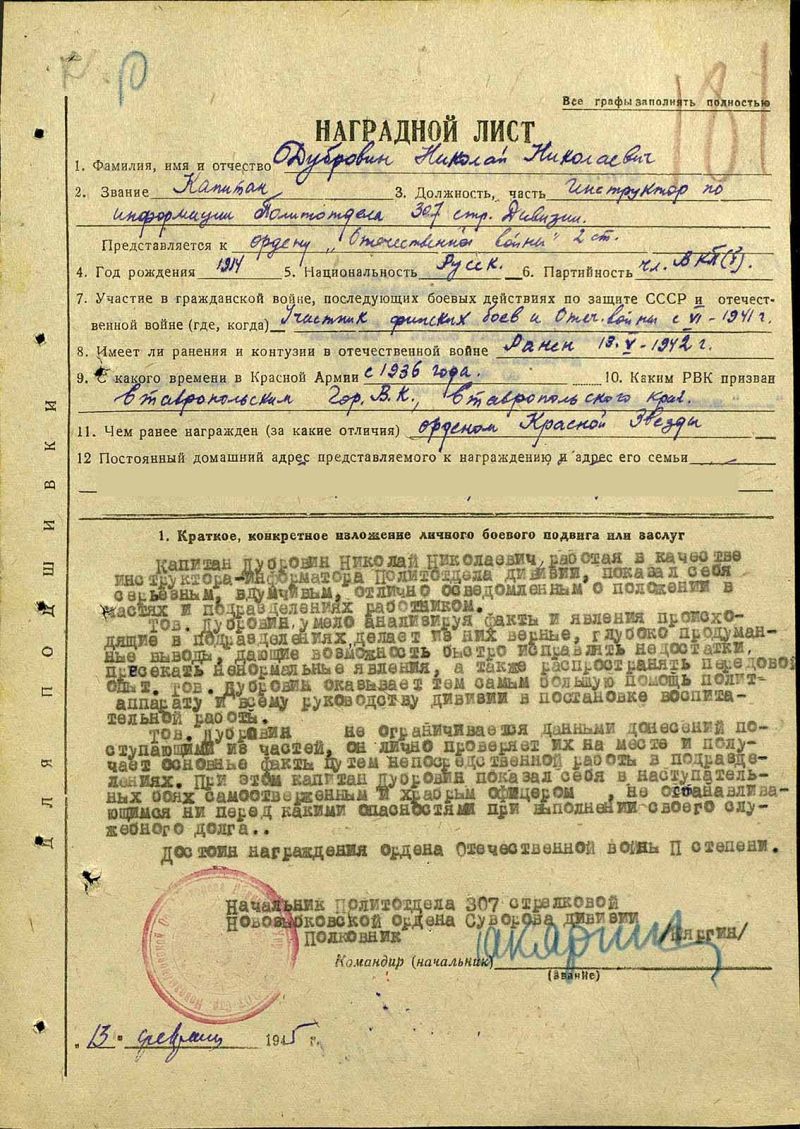 181
Все графы заполнять полностью
НАГРАДНОЙ ЛИСТ
1. Фамилия, имя и отчество Дубровин Николай Николаевич
2. Звание Капитан 3. Должность, часть Инструктор по
информации Политотдела 307 стр. Дивизии.
Представляется к ордену „Отечественной войны" 2 ст.
4. Год рождения 1914 5. Национальность Русск. 6. Партийность чл. ВКП(б).
7. Участие в гражданской войне, последующих боевых действиях по защите СССР и отечест-
венной войне (где, когда) Участник финских боев и Отеч. войны с VI-1941 г.
8. Имеет ли ранения и контузии в отечественной войне Ранен 13.V-1942 г.
9. С какого времени в Красной Армии с 1936 года. 10. Каким РВК призван
Ставропольским Гор.В.К., Ставропольского края.
11. Чем ранее награжден (за какие отличия) орденом Красной Звезды
12 Постоянный домашний адрес представляемого к награждению и адрес его семьи
1. Краткое, конкретное изложение личного боевого подвига или заслуг
Капитан Дубровин Николай Николаевич, работая в качестве
инструктора-информатора Политотдела дивизии, показал себя
серьезным, вдумчивым, отлично осведомленным о положении в
частях и подразделениях работником.
Тов. Дубровин, умело анализируя факты и явления происхо-
дящие в подразделениях, делает из них верные, глубоко продуман-
ные выводы, дающие возможность быстро исправлять недостатки,
пресекать ненормальные явления, а также распространять передовой
опыт. Тов. Дубровин оказывает тем самым большую помощь полит-
аппарату и всему руководству дивизии в постановке воспита-
тельной работы.
Тов. Дубровин не ограничивается данными донесений по-
ступающими из частей, он лично проверяет их на месте и полу-
чает основные факты путем непосредственной работы в подразде-
лениях. При этом капитан Дубровин показал себя в наступатель-
ных боях самоотверженным и храбрым офицером, не останавлива-
ющимся ни перед какими опасностями при выполнении своего слу-
жебного долга..
Достоин награждения ордена Отечественной войны II степени.
Начальник Политотдела 307 стрелковой
Новозыбковской ордена Суворова дивизии
Полковник /Карягин/
Командир (начальник)
(звание)
„13" февраля 1945 г.
ДЛЯ ПОДШИВКИ